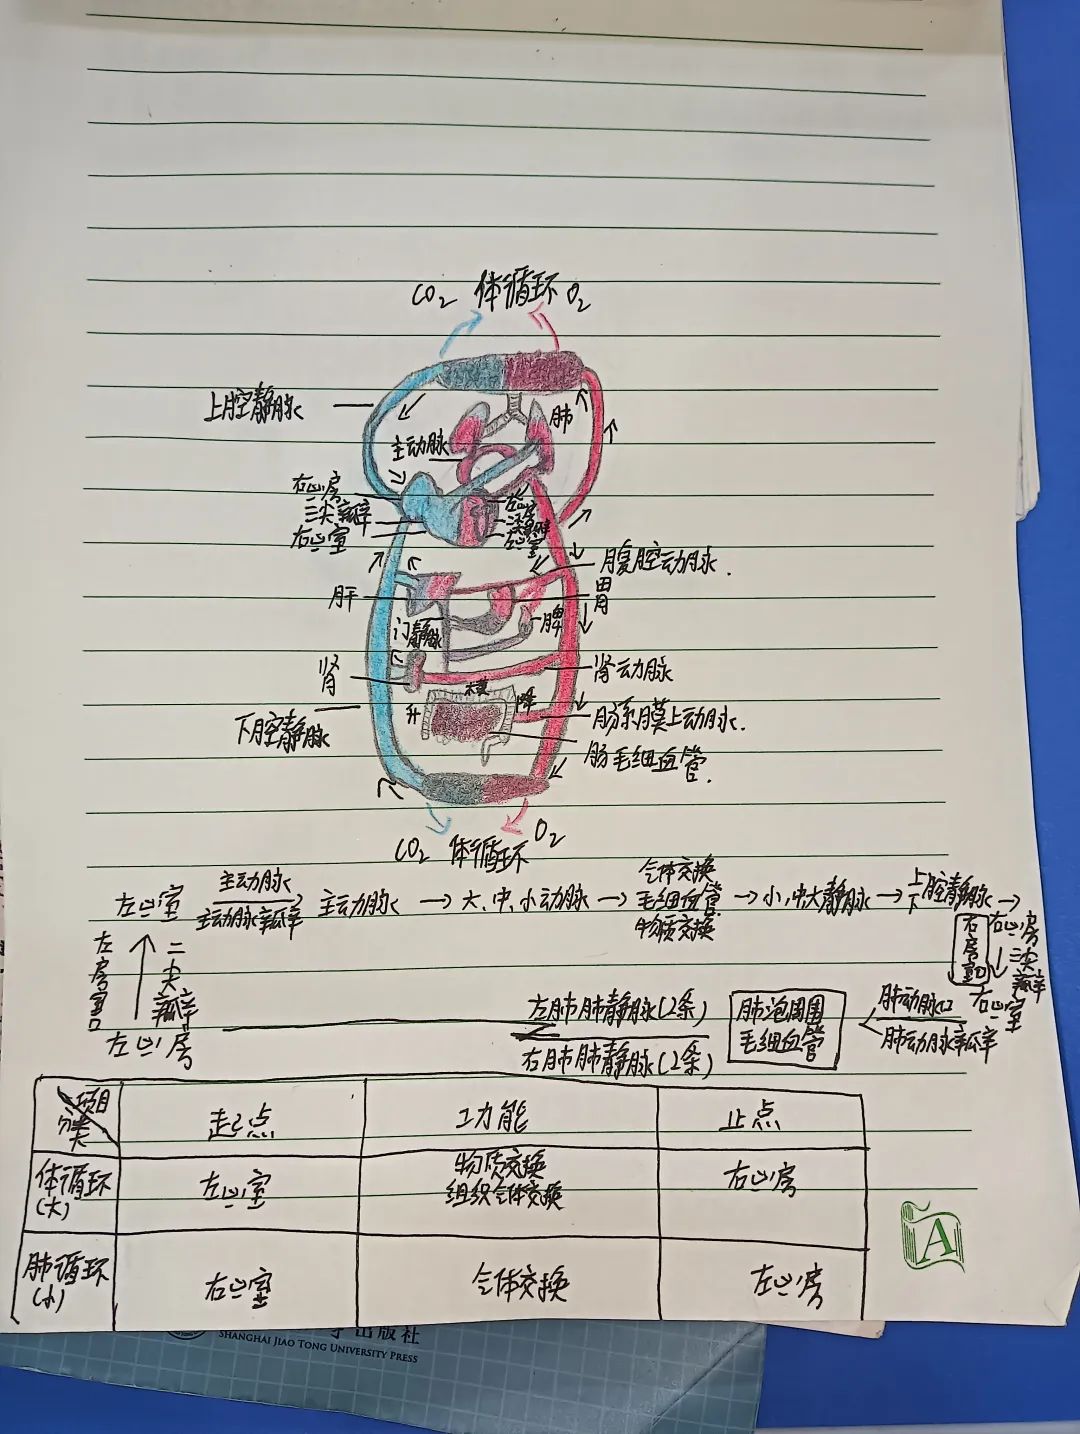 CO₂ 体循环 O₂
上腔静脉
肺
主动脉
右心房
三尖瓣
右心室
左心房
二尖瓣
左心室
腹腔动脉.
肝
胃
门静脉
脾
肾
肾动脉
横
升
降
下腔静脉
肠系膜上动脉.
肠毛细血管.
CO₂ 体循环 O₂
左心室 主动脉 主动脉瓣 主动脉 → 大、中、小动脉 → 气体交换 毛细血管 物质交换 → 小,中大静脉 → 上下腔静脉 →
右心房
右房室口 ↓ 三尖瓣
右心室
肺动脉口
肺动脉瓣
肺泡周围
毛细血管
左肺肺静脉(2条)
右肺肺静脉(2条)
左心房
左房室口 ↑ 二尖瓣
项目 分类 起点 功能 止点
体循环(大) 左心室 物质交换 组织气体交换 右心房
肺循环(小) 右心室 气体交换 左心房
A
出版社
SHANGHAI JIAO TONG UNIVERSITY PRESS